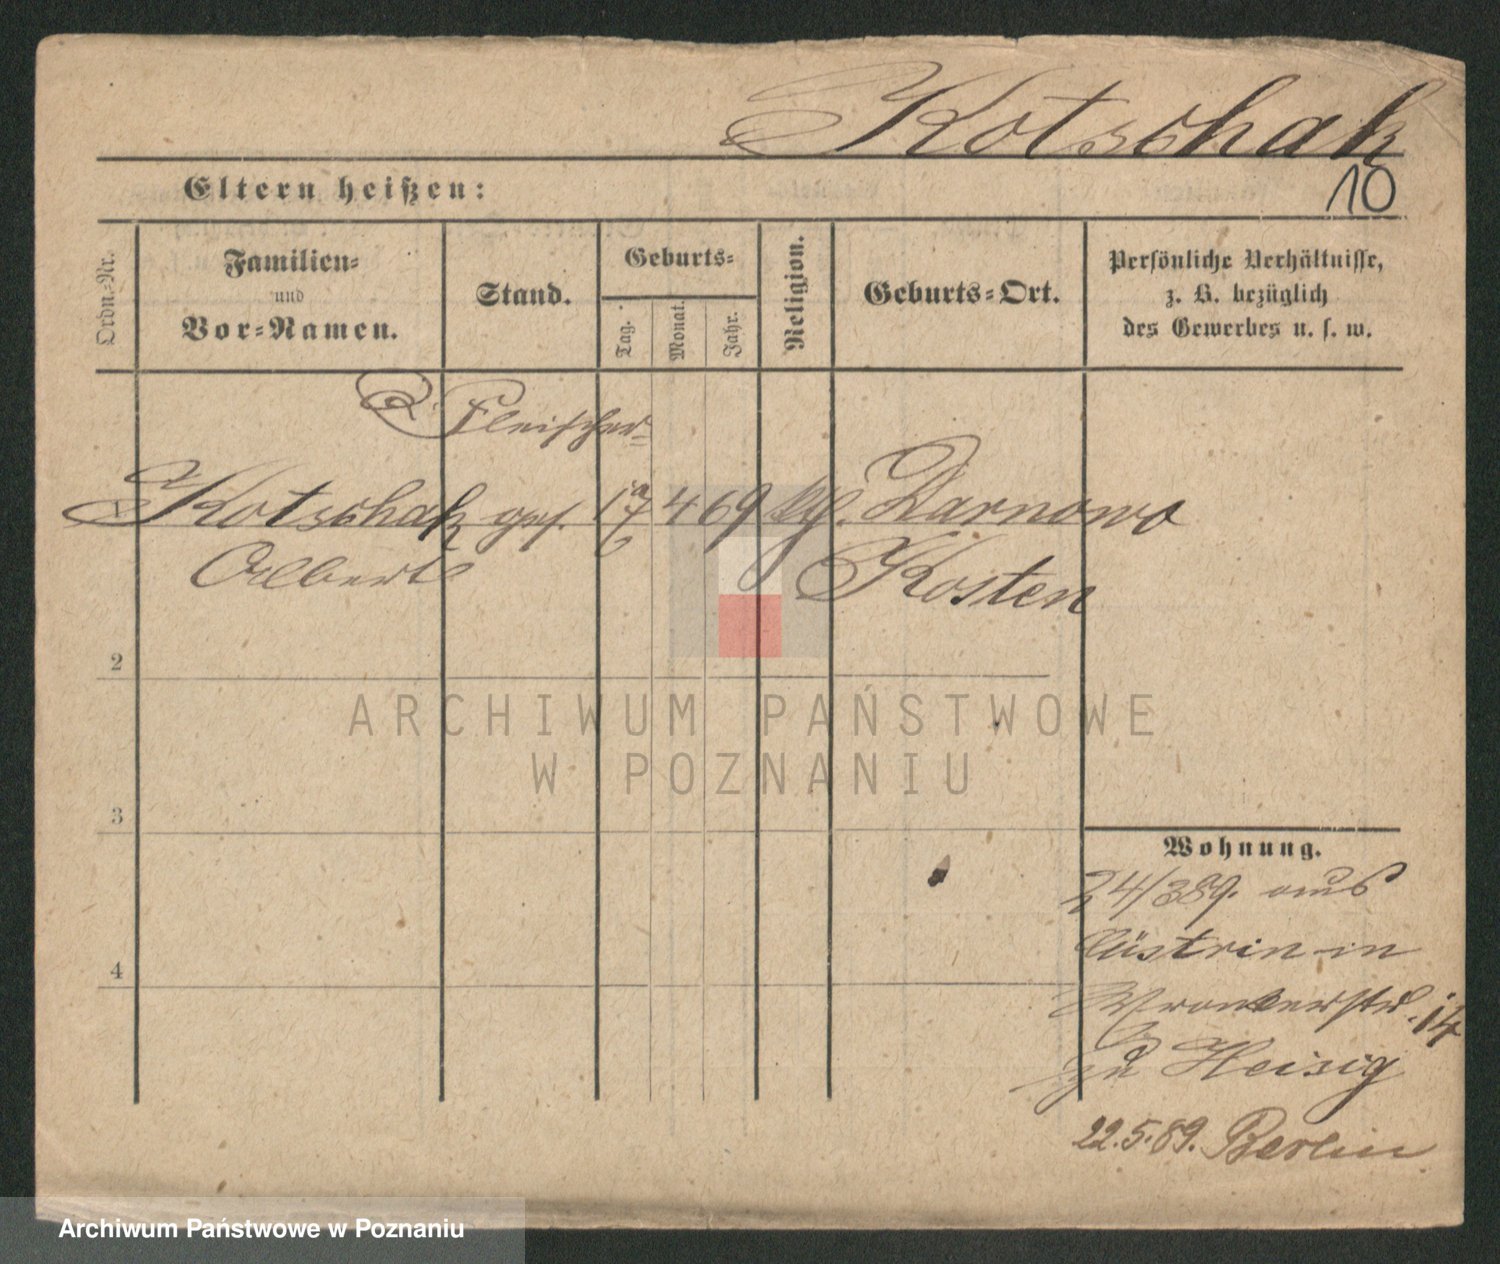 Kotschak
10
Eltern heißen:
Ordn.-Nr.
Familien-
und
Vor-Namen.
Stand.
Geburts-
Tag.
Monat.
Jahr.
Religion.
Geburts-Ort.
Persönliche Verhältnisse,
z. B. bezüglich
des Gewerbes u. s. w.
Fleischer-
1 Kotschak ges. 17 4 69 kg. Darnowo
Albert Kosten
2
3
4
ARCHIWUM PAŃSTWOWE
W POZNANIU
Wohnung.
24/389. aus
Cüstrin in
Wronkerstr. 14
zu Heisig
22.5.89. Berlin
Archiwum Państwowe w Poznaniu